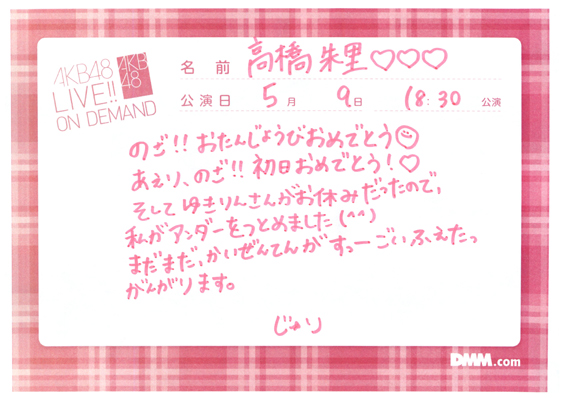 AKB48
LIVE!!
ON DEMAND
AKB
48
名 前 高橋朱里♡♡♡
公演日 5月 9日 18:30 公演
のぞ!! おたんじょうびおめでとう☺
あえり、のぞ!! 初日おめでとう!♡
そしてゆきりんさんがお休みだったので、
私がアンダーをつとめました(^^)
まだまだ、かいぜんてんがすっーごいふえたっ
がんがります。
じゅり
DMM.com